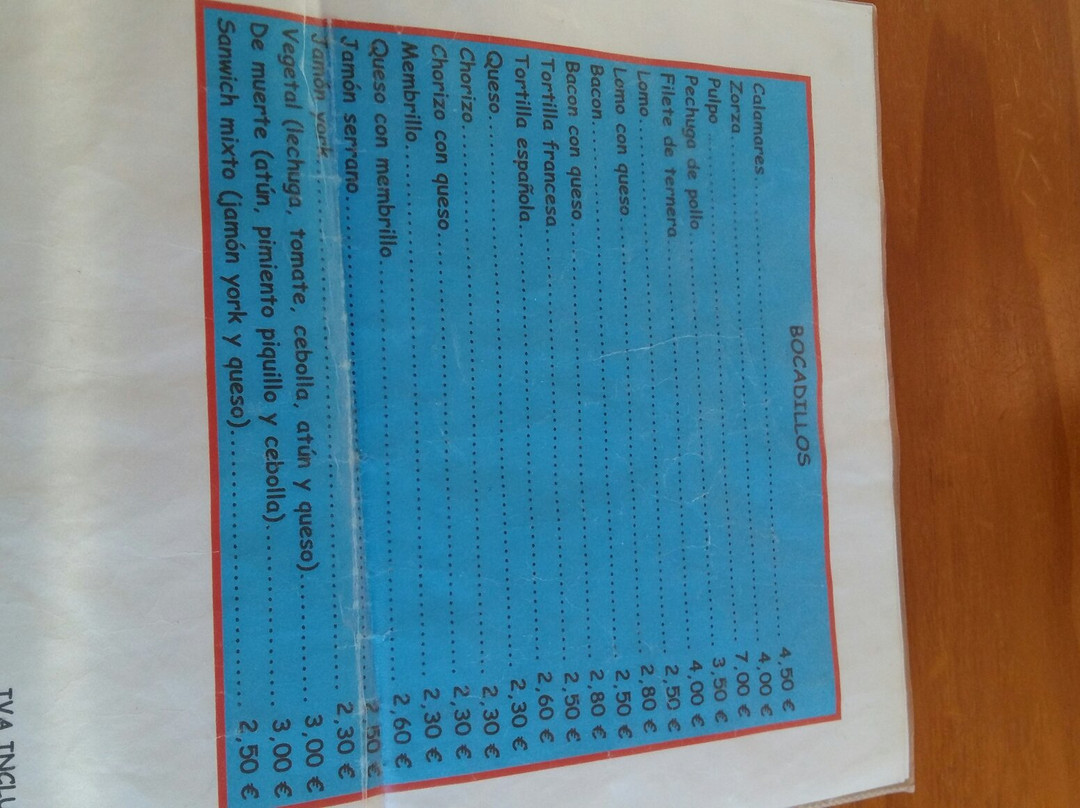 BOCADILLOS
Calamares 4,50 €
Zorza 4,00 €
Pulpo 7,00 €
Pechuga de pollo 3,50 €
Filete de ternera 4,00 €
Lomo 2,50 €
Lomo con queso 2,80 €
Bacon 2,50 €
Bacon con queso 2,80 €
Tortilla francesa 2,50 €
Tortilla española 2,60 €
Queso 2,30 €
Chorizo 2,30 €
Chorizo con queso 2,30 €
Membrillo 2,30 €
Queso con membrillo 2,60 €
Jamón serrano 2,50 €
Jamón york 2,30 €
Vegetal (lechuga, tomate, cebolla, atún y queso) 3,00 €
De muerte (atún, pimiento piquillo y cebolla) 3,00 €
Sanwich mixto (jamón york y queso) 2,50 €
IVA